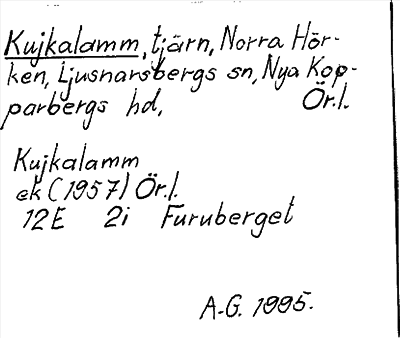 Kujkalamm, tjärn, Norra Hör-
ken, Ljusnarsbergs sn, Nya Kop-
parbergs hd, Ör.l.
Kujkalamm
ek (1957) Ör.l.
12E 2i Furuberget
A-G. 1995.